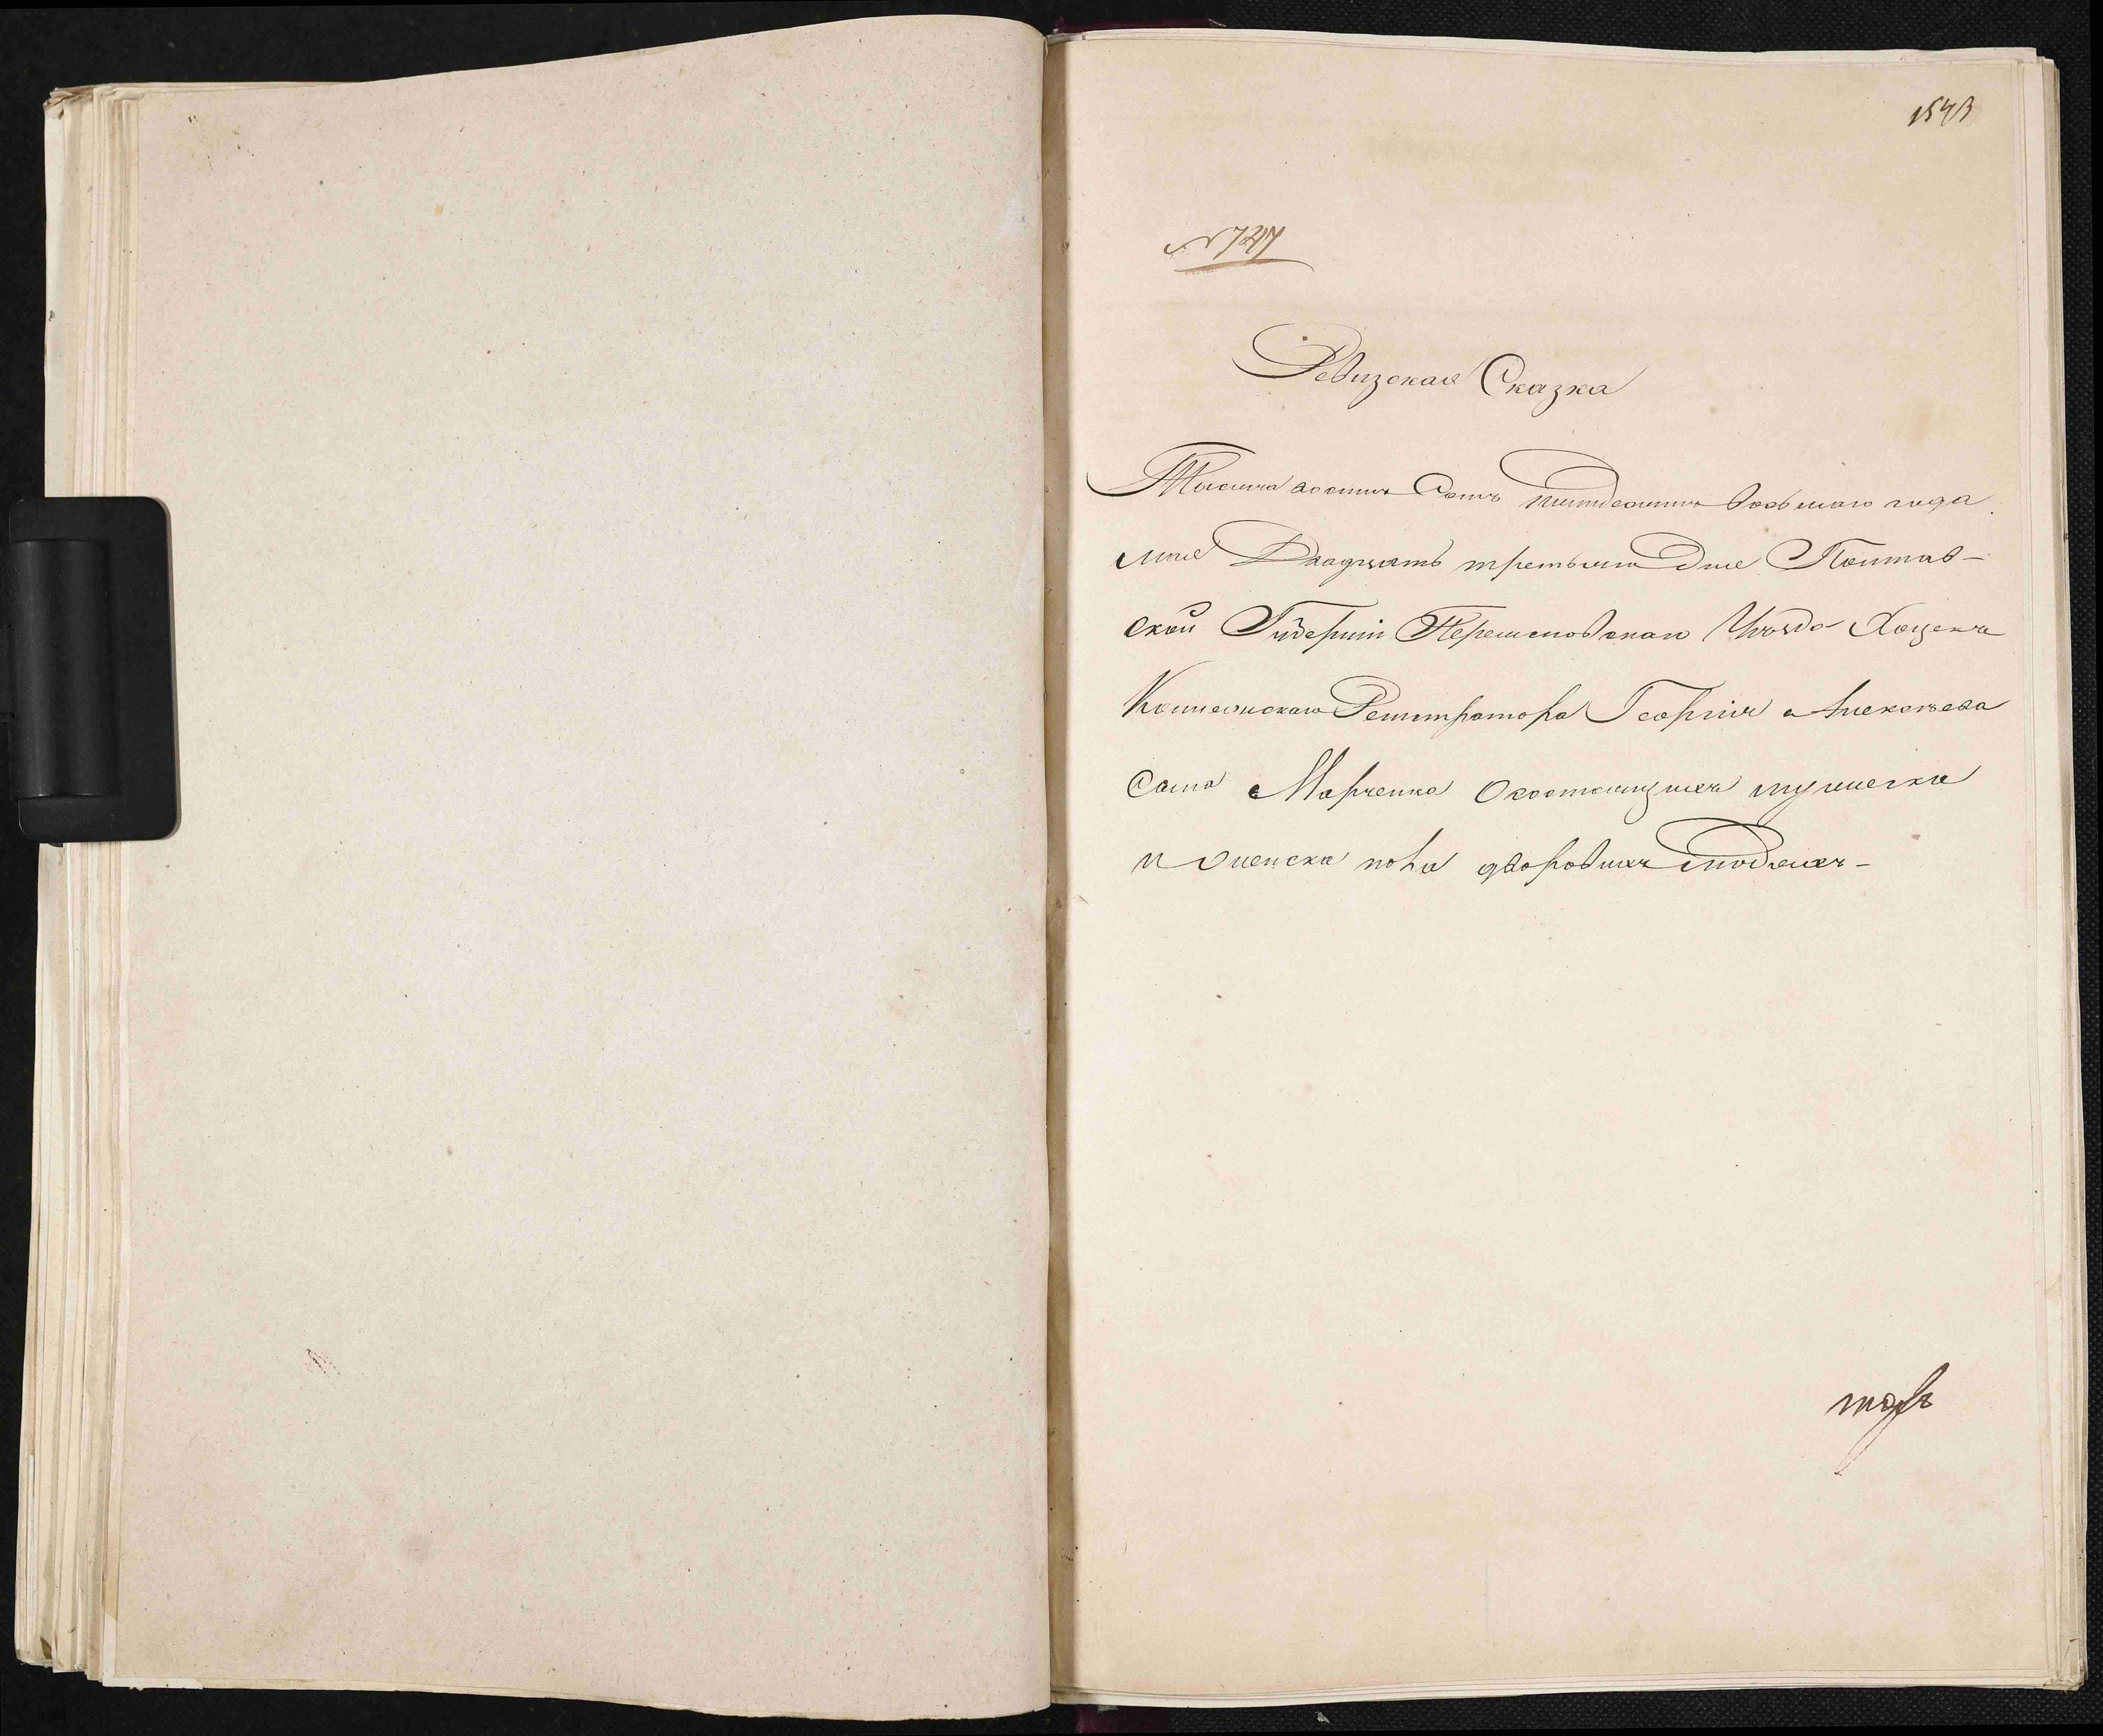 1543
№ 727
Ревизская Сказка
Тысяча восемь Сотъ пятдесятъ восьмаго года
мая Двадцать третьяго Дня Полтав-
ской Губерніи Переяславскаго Уѣзда Хоценка
Коллежскаго Регистратора Георгія Алексѣева
Сына Марченка о состоящихъ мужеска
и женска пола дворовыхъ людяхъ-